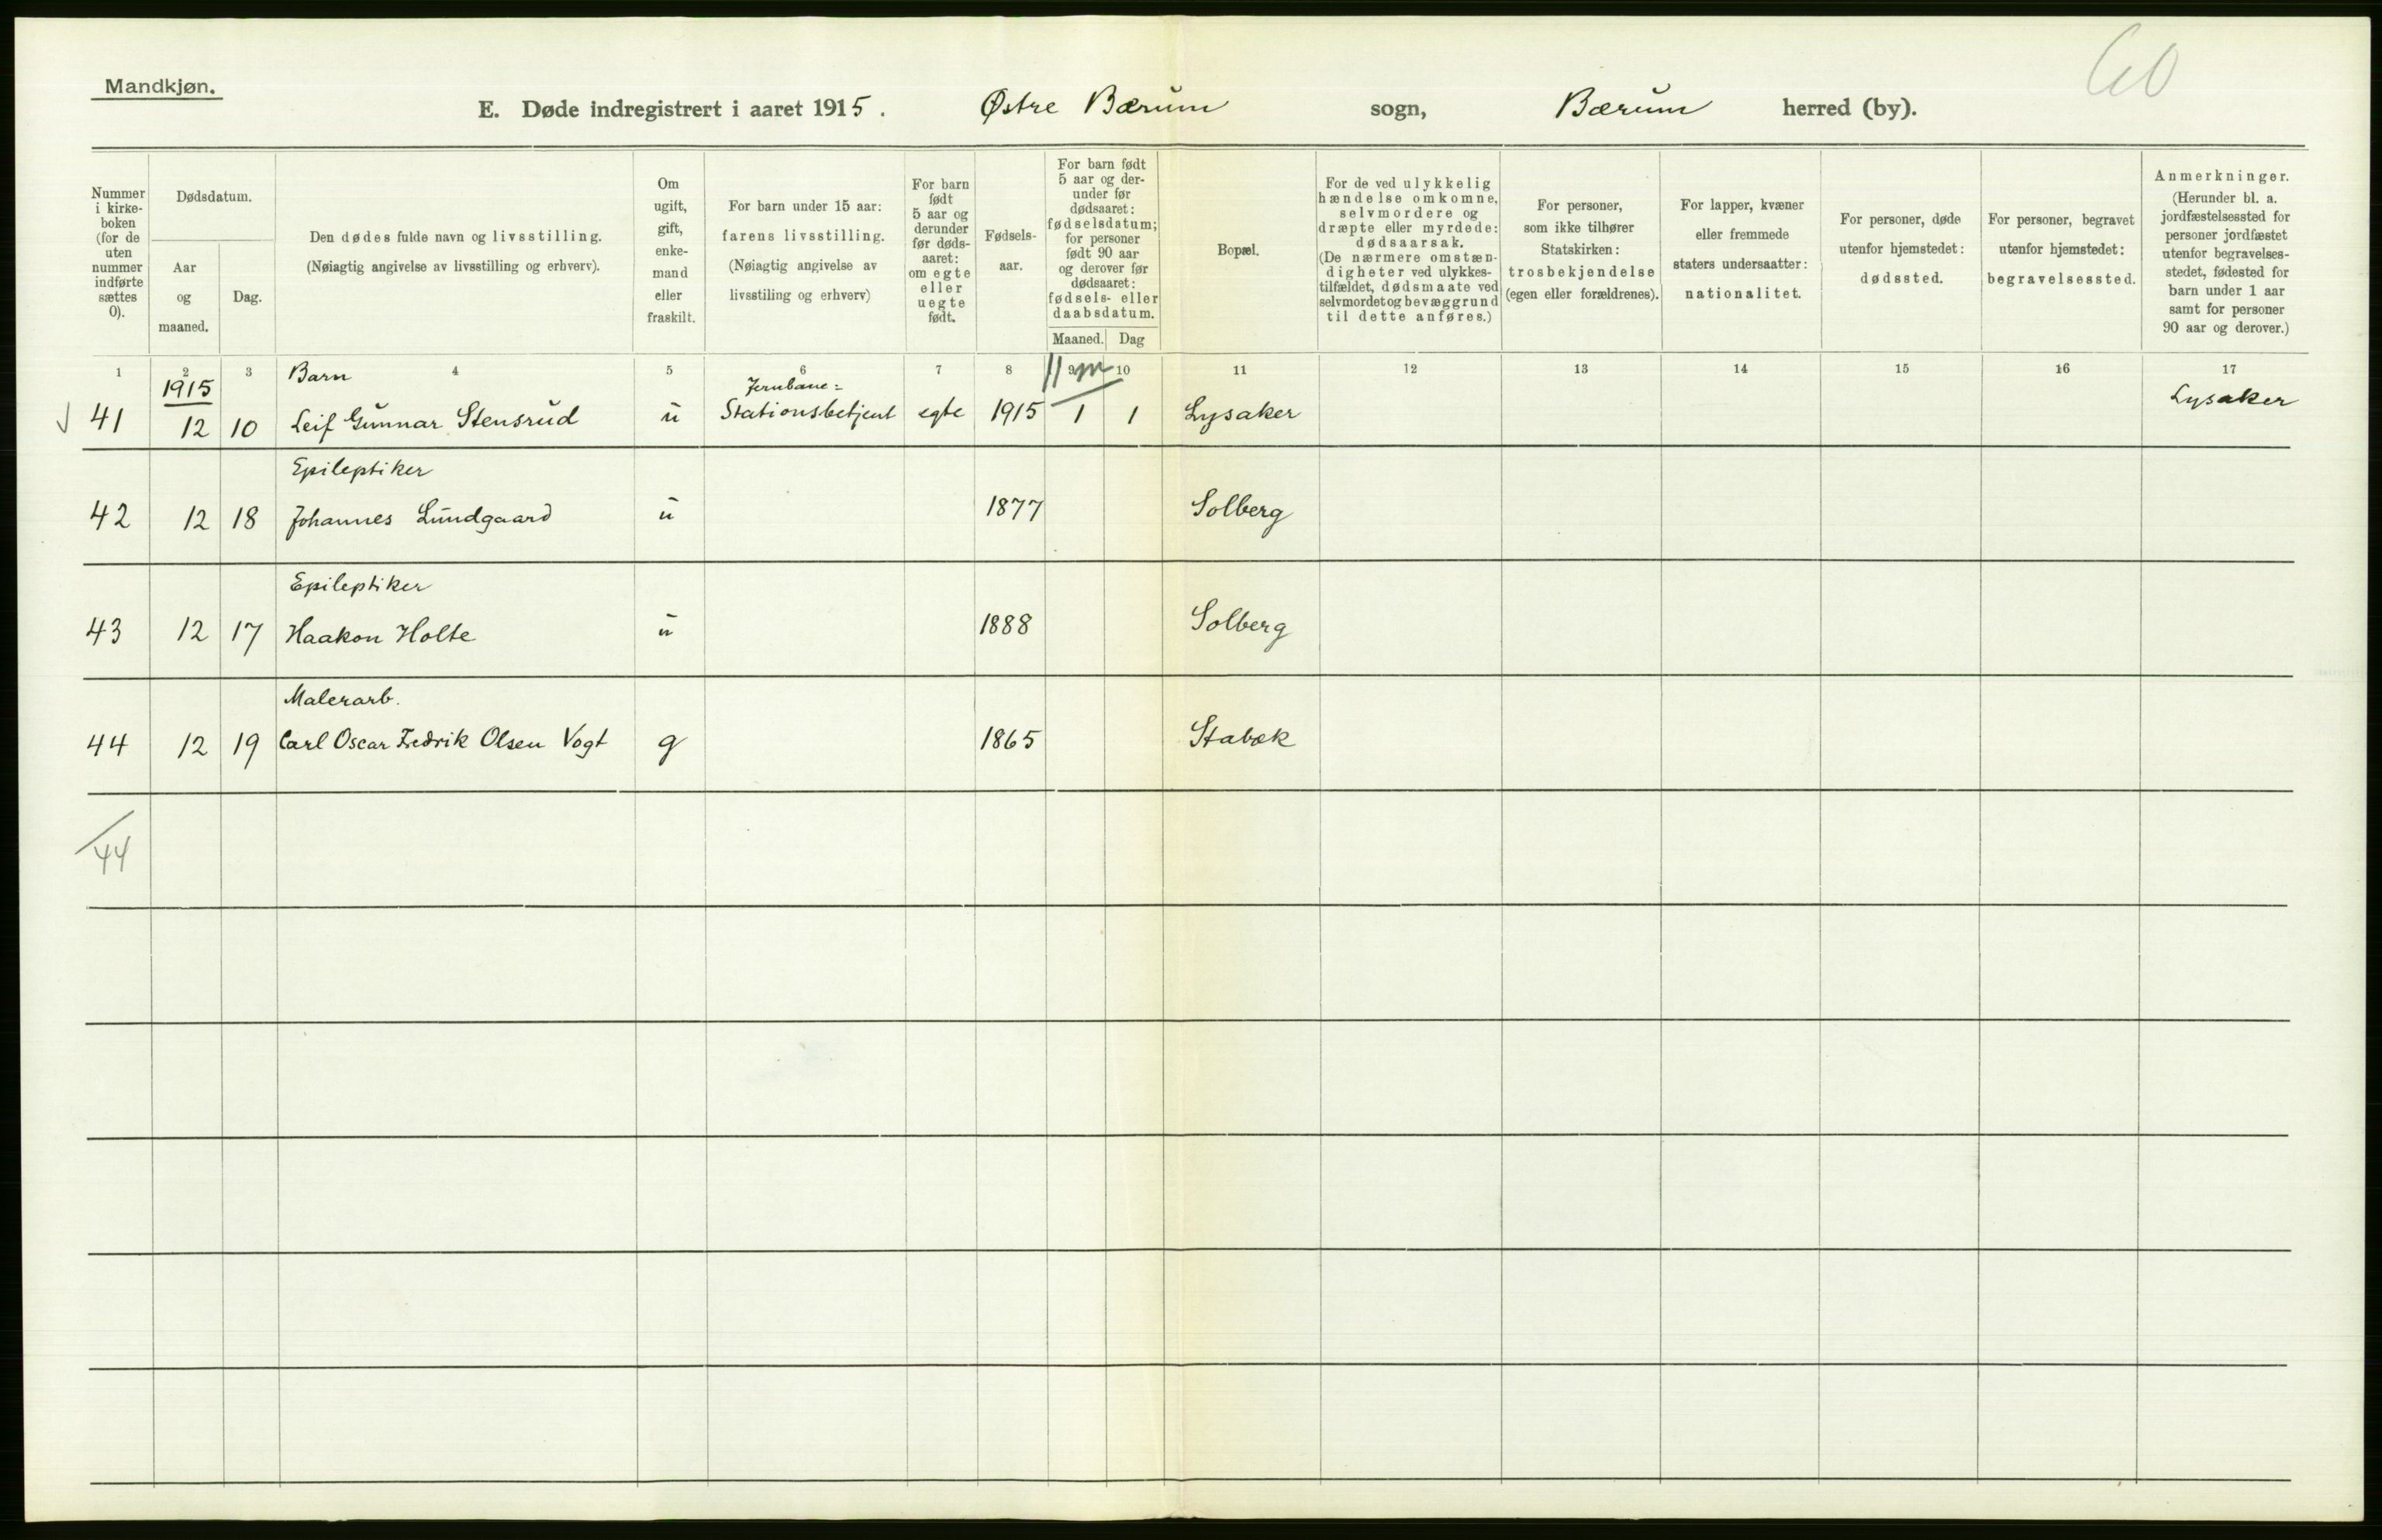 60
Mandkjøn.
E. Døde indregistrert i aaret 1915. Østre Bærum sogn, Bærum herred (by).
Nummer
i kirke-
boken
(for de
uten
nummer
indførte
sættes
0).
Dødsdatum.
Aar
og
maaned.
Dag.
Den dødes fulde navn og livsstilling.
(Nøiagtig angivelse av livsstilling og erhverv).
Om
ugift,
gift,
enke-
mand
eller
fraskilt.
For barn under 15 aar:
farens livsstilling.
(Nøiagtig angivelse av
livsstiling og erhverv)
For barn
født
5 aar og
derunder
før døds-
aaret:
om egte
eller
uegte
født.
Fødsels-
aar.
For barn født
5 aar og der-
under før
dødsaaret:
fødselsdatum;
for personer
født 90 aar
og derover før
dødsaaret:
fødsels- eller
daabsdatum.
Maaned. Dag
Bopæl.
For de ved ulykkelig
hændelse omkomne,
selvmordere og
dræpte eller myrdede:
dødsaarsak.
(De nærmere omstæn-
digheter ved ulykkes-
tilfældet, dødsmaate ved
selvmordet og bevæggrund
til dette anføres.)
For personer,
som ikke tilhører
Statskirken:
trosbekjendelse
(egen eller forældrenes).
For lapper, kvæner
eller fremmede
staters undersaatter:
nationalitet.
For personer, døde
utenfor hjemstedet:
dødssted.
For personer, begravet
utenfor hjemstedet:
begravelsessted.
Anmerkninger.
(Herunder bl. a.
jordfæstelsessted for
personer jordfæstet
utenfor begravelses-
stedet, fødested for
barn under 1 aar
samt for personer
90 aar og derover.)
1 2 3 4 5 6 7 8 9 10 11 12 13 14 15 16 17
1915 Barn Jernbane= 11 m Lysaker
41 12 10 Leif Gunnar Stensrud u Stationsbetjent egte 1915 1 1 Lysaker
Epileptiker
42 12 18 Johannes Lundgaard u 1877 Solberg
Epileptiker
43 12 17 Haakon Holte u 1888 Solberg
Malerarb.
44 12 19 Carl Oscar Fredrik Olsen Vogt g 1865 Stabæk
44